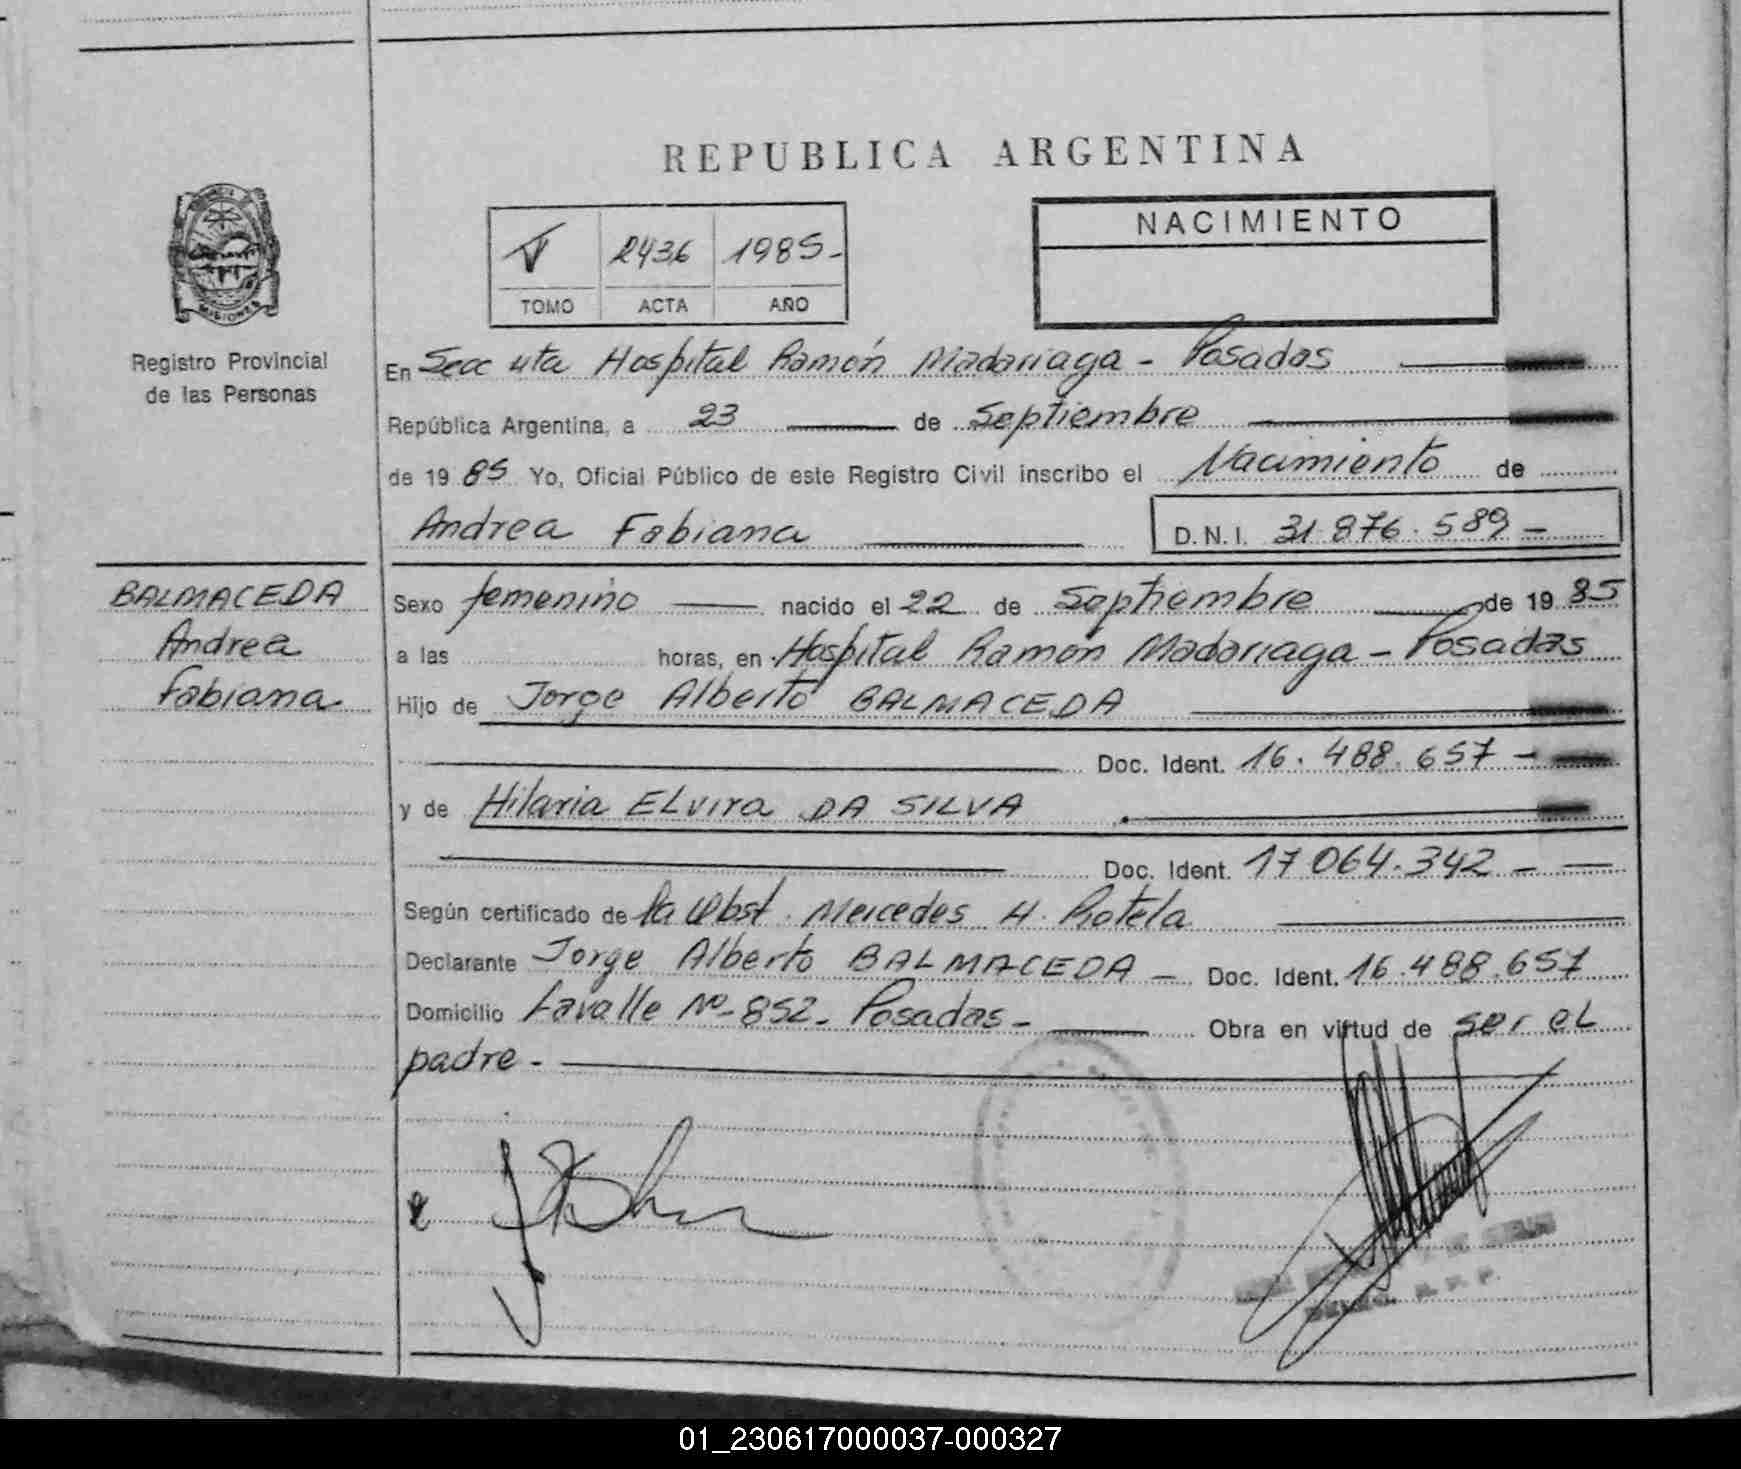 REPUBLICA ARGENTINA
NACIMIENTO
V 2436 1985-
TOMO ACTA AÑO
MISIONES
Registro Provincial
de las Personas
En Secc 4ta Hospital Ramón Madariaga - Posadas
República Argentina, a 23 de Septiembre
de 19 85 Yo, Oficial Público de este Registro Civil inscribo el Nacimiento de
Andrea Fabiana D.N.I. 31.876.589-
BALMACEDA
Andrea
Fabiana
Sexo femenino nacido el 22 de Septiembre de 19 85
a las horas, en Hospital Ramón Madariaga - Posadas
Hijo de Jorge Alberto BALMACEDA
Doc. Ident. 16.488.657-
y de Hilaria ELvira DA SILVA
Doc. Ident. 17 064.342-
Según certificado de la Obst. Mercedes H. Rotela
Declarante Jorge Alberto BALMACEDA - Doc. Ident. 16.488.657
Domicilio Lavalle Nº-852- Posadas- Obra en virtud de ser el
padre-
01_230617000037-000327